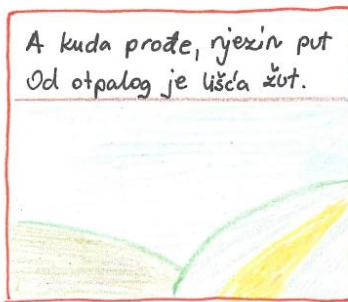 A kuda prođe, njezin put
Od otpalog je lišća žut.